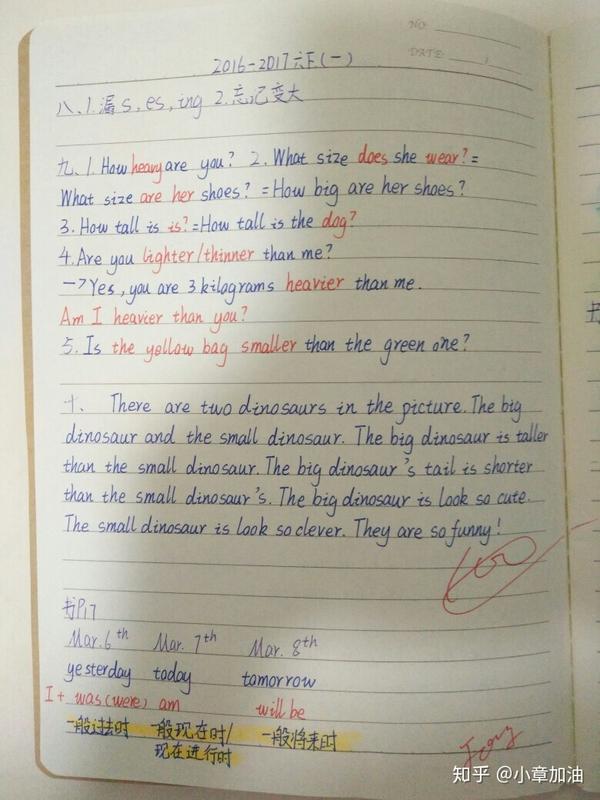 NO.
DATE
2016-2017六下(一)
八、1.漏s, es, ing 2.忘记变大
九、1. How heavy are you? 2. What size does she wear? =
What size are her shoes? = How big are her shoes?
3. How tall is is? = How tall is the dog?
4. Are you lighter/thinner than me?
→Yes, you are 3 kilograms heavier than me.
Am I heavier than you?
5. Is the yellow bag smaller than the green one?
十、 There are two dinosaurs in the picture. The big
dinosaur and the small dinosaur. The big dinosaur is taller
than the small dinosaur. The big dinosaur's tail is shorter
than the small dinosaur's. The big dinosaur is look so cute.
The small dinosaur is look so clever. They are so funny!
100
书P17
Mar. 6th Mar. 7th Mar. 8th
yesterday today tomorrow
I+ was(were) am will be
一般过去时 一般现在时/ 一般将来时
现在进行时
知乎 @小章加油